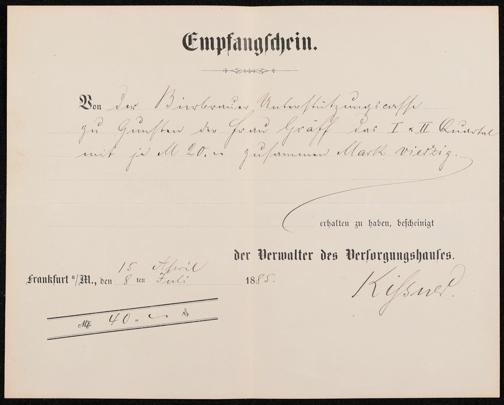 Empfangschein.
Von der Bierbrauer Unterstützungscasse
zu Gunsten der Frau Gräff das I & II Quartal
mit je M 20.– zusammen Mark vierzig.–
erhalten zu haben, bescheinigt
der Verwalter des Versorgungshauses.
15 April
Frankfurt a/M., den 8 ten Juli 1885.
Kissner.
Mk 40.–